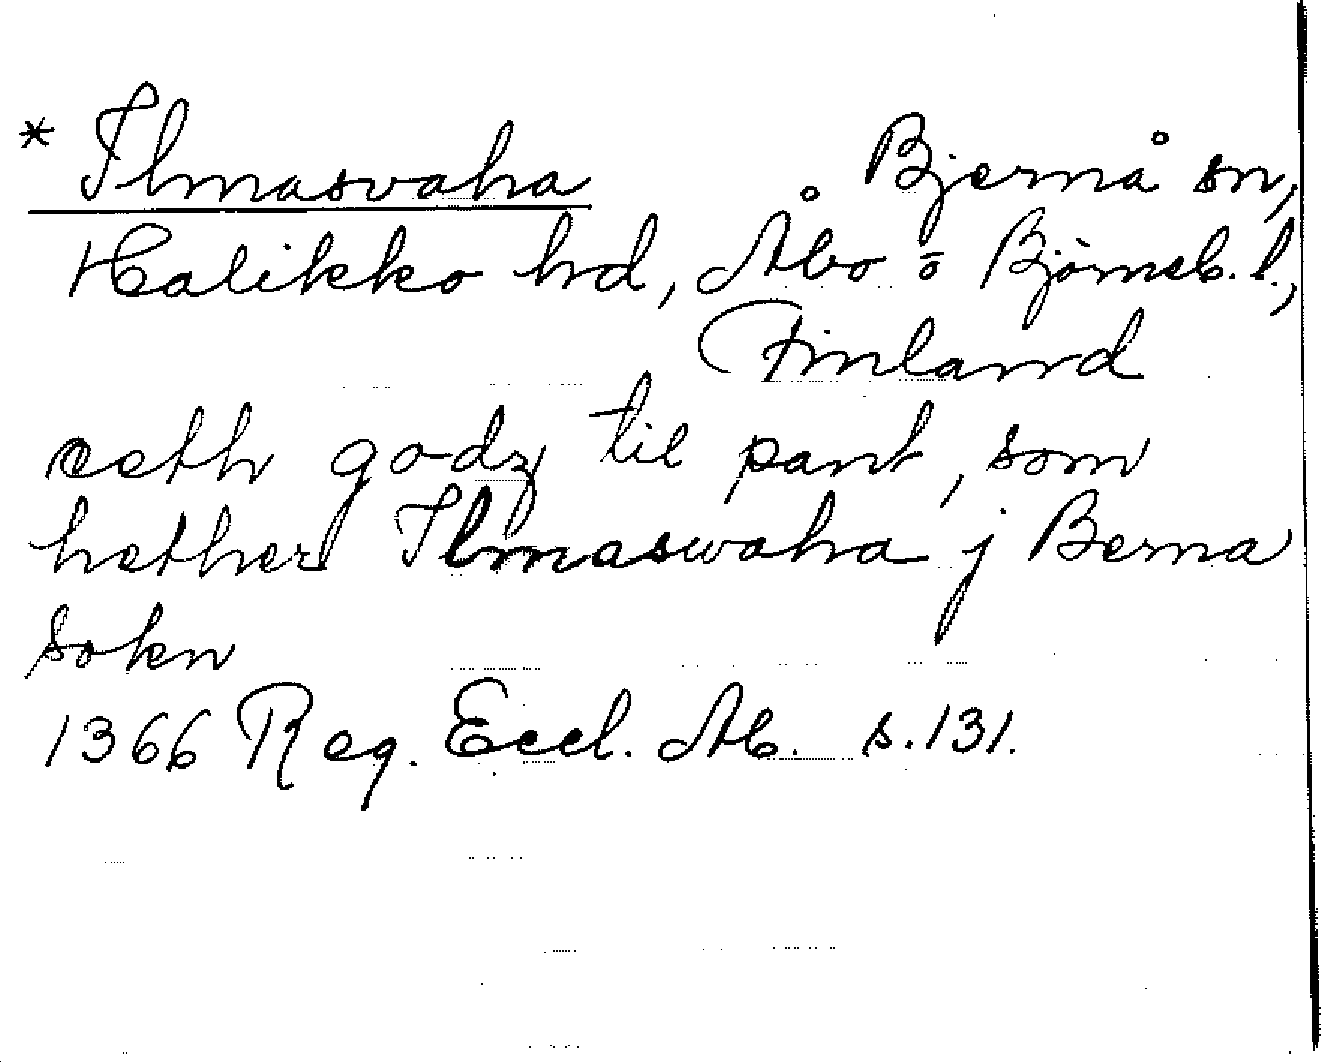 * Ilmasvaha Bjernå sn,
Halikko hd, Åbo o Björneb. l.,
Finland
eeth godz til pant, som
hether Ilmaswaha j Berna
sokn
1366 Reg. Eccl. Ab. s. 131.